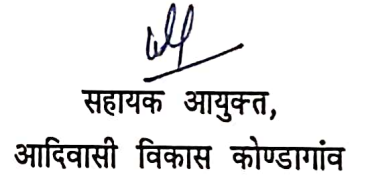 सहायक आयुक्त,
आदिवासी विकास कोण्डागांव